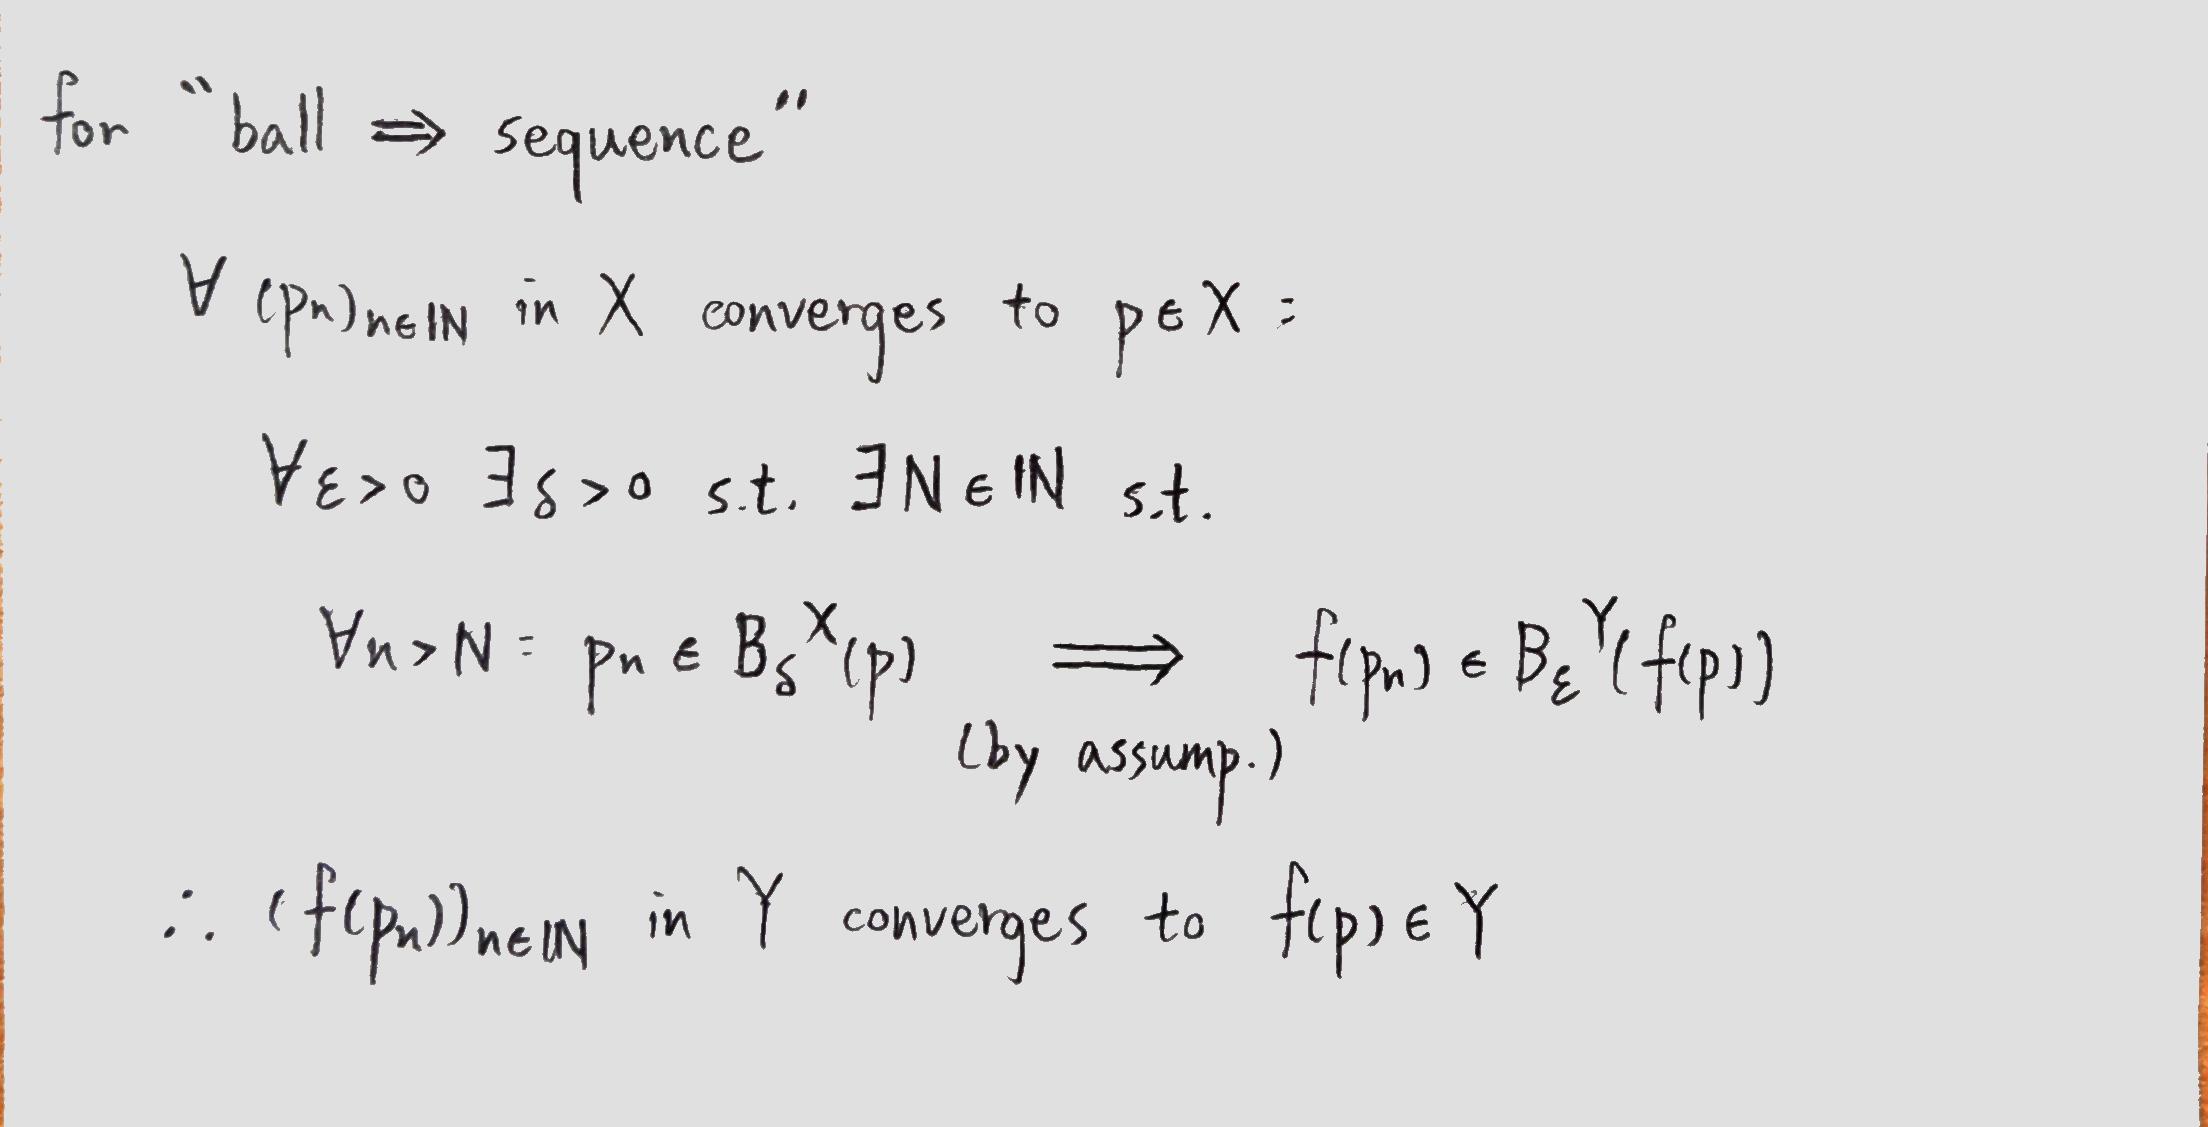 for “ball ⇒ sequence”
∀ (pₙ)ₙ∈ℕ in X converges to p∈X :
∀ε>0 ∃δ>0 s.t. ∃N∈ℕ s.t.
∀n>N : pₙ ∈ B_δ^X(p) ⟹ f(pₙ) ∈ B_ε^Y(f(p))
(by assump.)
∴ (f(pₙ))ₙ∈ℕ in Y converges to f(p)∈Y